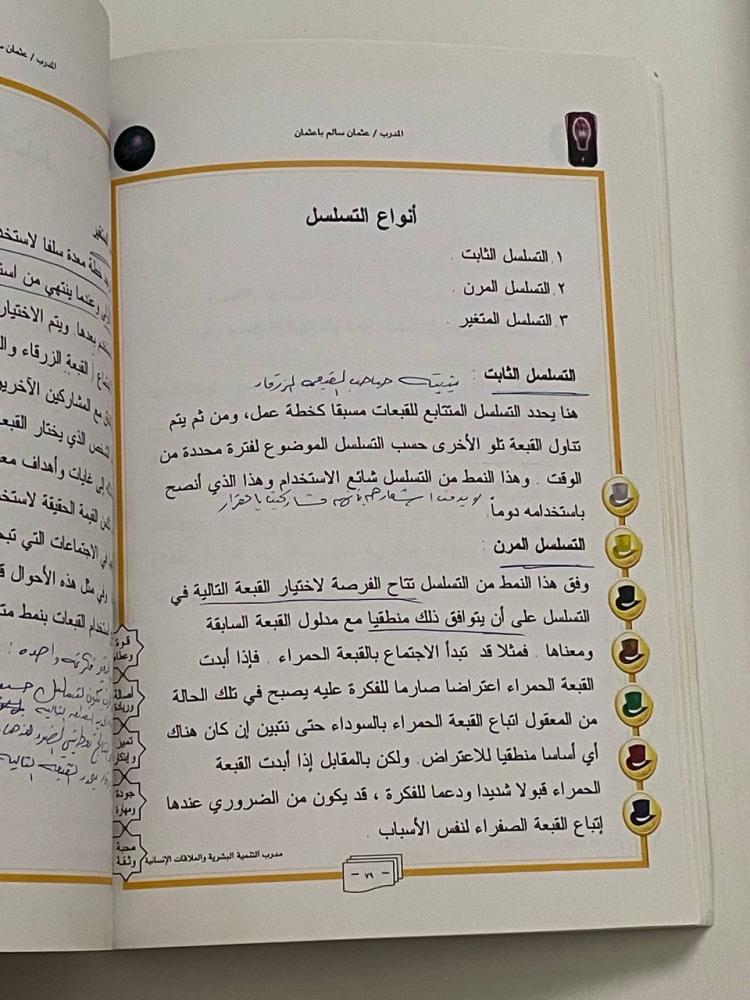 المدرب / عثمان سالم باعثمان
أنواع التسلسل
١. التسلسل الثابت .
٢. التسلسل المرن .
٣. التسلسل المتغير .
التسلسل الثابت : يثبته صاحب القبعه الزرقاء
هنا يحدد التسلسل المتتابع للقبعات مسبقا كخطة عمل، ومن ثم يتم
تناول القبعة تلو الأخرى حسب التسلسل الموضوع لفترة محددة من
الوقت . وهذا النمط من التسلسل شائع الاستخدام وهذا الذي أنصح
باستخدامه دوماً.
التسلسل المرن :
وفق هذا النمط من التسلسل تتاح الفرصة لاختيار القبعة التالية في
التسلسل على أن يتوافق ذلك منطقيا مع مدلول القبعة السابقة
ومعناها . فمثلا قد تبدأ الاجتماع بالقبعة الحمراء . فإذا أبدت
القبعة الحمراء اعتراضا صارما للفكرة عليه يصبح في تلك الحالة
من المعقول اتباع القبعة الحمراء بالسوداء حتى نتبين إن كان هناك
أي أساسا منطقيا للاعتراض. ولكن بالمقابل إذا أبدت القبعة
الحمراء قبولا شديدا ودعما للفكرة ، قد يكون من الضروري عندها
إتباع القبعة الصفراء لنفس الأسباب .
قوة
وعطاء
أصالة
وريادة
تميز
وابتكار
جودة
ومهارة
محبة
وثقة
مدرب التنمية البشرية والعلاقات الإنسانية
- ٧٩ -
المدرب / عثمان
خطة معدة سلفا
وعندما ينتهي من
بعدها. ويتم الاختيار
القبعة الزرقاء
مع المشاركين الآخرين
الذي يختار القبعة
غايات وأهداف
القيمة الحقيقة
الاجتماعات التي
وفي مثل هذه الأحوال
استخدام القبعات بنمط